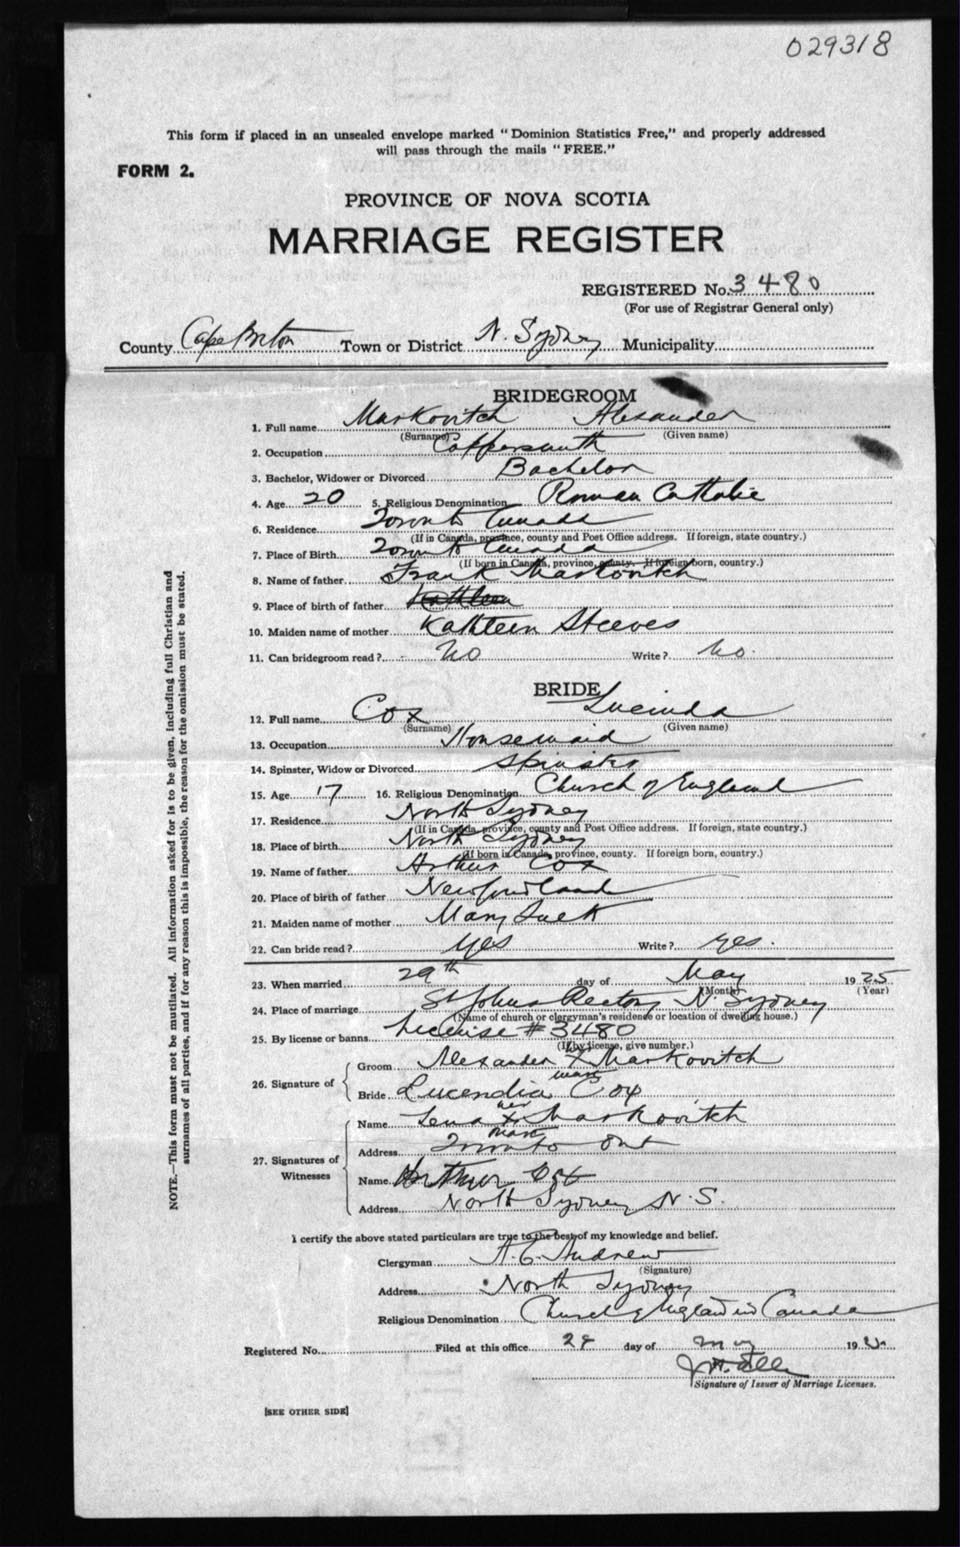 029318
This form if placed in an unsealed envelope marked "Dominion Statistics Free," and properly addressed
will pass through the mails "FREE."
FORM 2.
PROVINCE OF NOVA SCOTIA
MARRIAGE REGISTER
REGISTERED No. 3480
(For use of Registrar General only)
County Cape Breton Town or District N. Sydney Municipality
BRIDEGROOM
1. Full name Markovitch Alexander
(Surname) (Given name)
2. Occupation Coppersmith
3. Bachelor, Widower or Divorced Bachelor
4. Age 20 5. Religious Denomination Roman Catholic
6. Residence Toronto Canada
(If in Canada, province, county and Post Office address. If foreign, state country.)
7. Place of Birth Toronto Canada
(If born in Canada, province, county. If foreign born, country.)
8. Name of father Frank Markovitch
9. Place of birth of father Kathleen
10. Maiden name of mother Kathleen Steeves
11. Can bridegroom read? No Write? No.
BRIDE
12. Full name Cox Lucinda
(Surname) (Given name)
13. Occupation Housemaid
14. Spinster, Widow or Divorced Spinster
15. Age 17 16. Religious Denomination Church of England
17. Residence North Sydney
(If in Canada, province, county and Post Office address. If foreign, state country.)
18. Place of birth North Sydney
(If born in Canada, province, county. If foreign born, country.)
19. Name of father Arthur Cox
20. Place of birth of father Newfoundland
21. Maiden name of mother Mary
22. Can bride read? yes Write? yes.
23. When married 29th day of May 1925
(Month) (Year)
24. Place of marriage St Johns Rectory N. Sydney
(Name of church or clergyman's residence or location of dwelling house.)
25. By license or banns License # 3480
(If by license, give number.)
26. Signature of
Groom Alexander his X mark Markovitch
Bride Lucendia Cox
27. Signatures of Witnesses
Name Lena her X mark Markovitch
Address Toronto Ont
Name Arthur Cox
Address North Sydney N. S.
I certify the above stated particulars are true to the best of my knowledge and belief.
Clergyman A. C. Andrew
(Signature)
Address North Sydney
Religious Denomination Church of England in Canada
Registered No. Filed at this office 29 day of May 192
Signature of Issuer of Marriage Licenses.
[SEE OTHER SIDE]
NOTE.—This form must not be mutilated. All information asked for is to be given, including full Christian and
surnames of all parties, and if for any reason this is impossible, the reason for the omission must be stated.